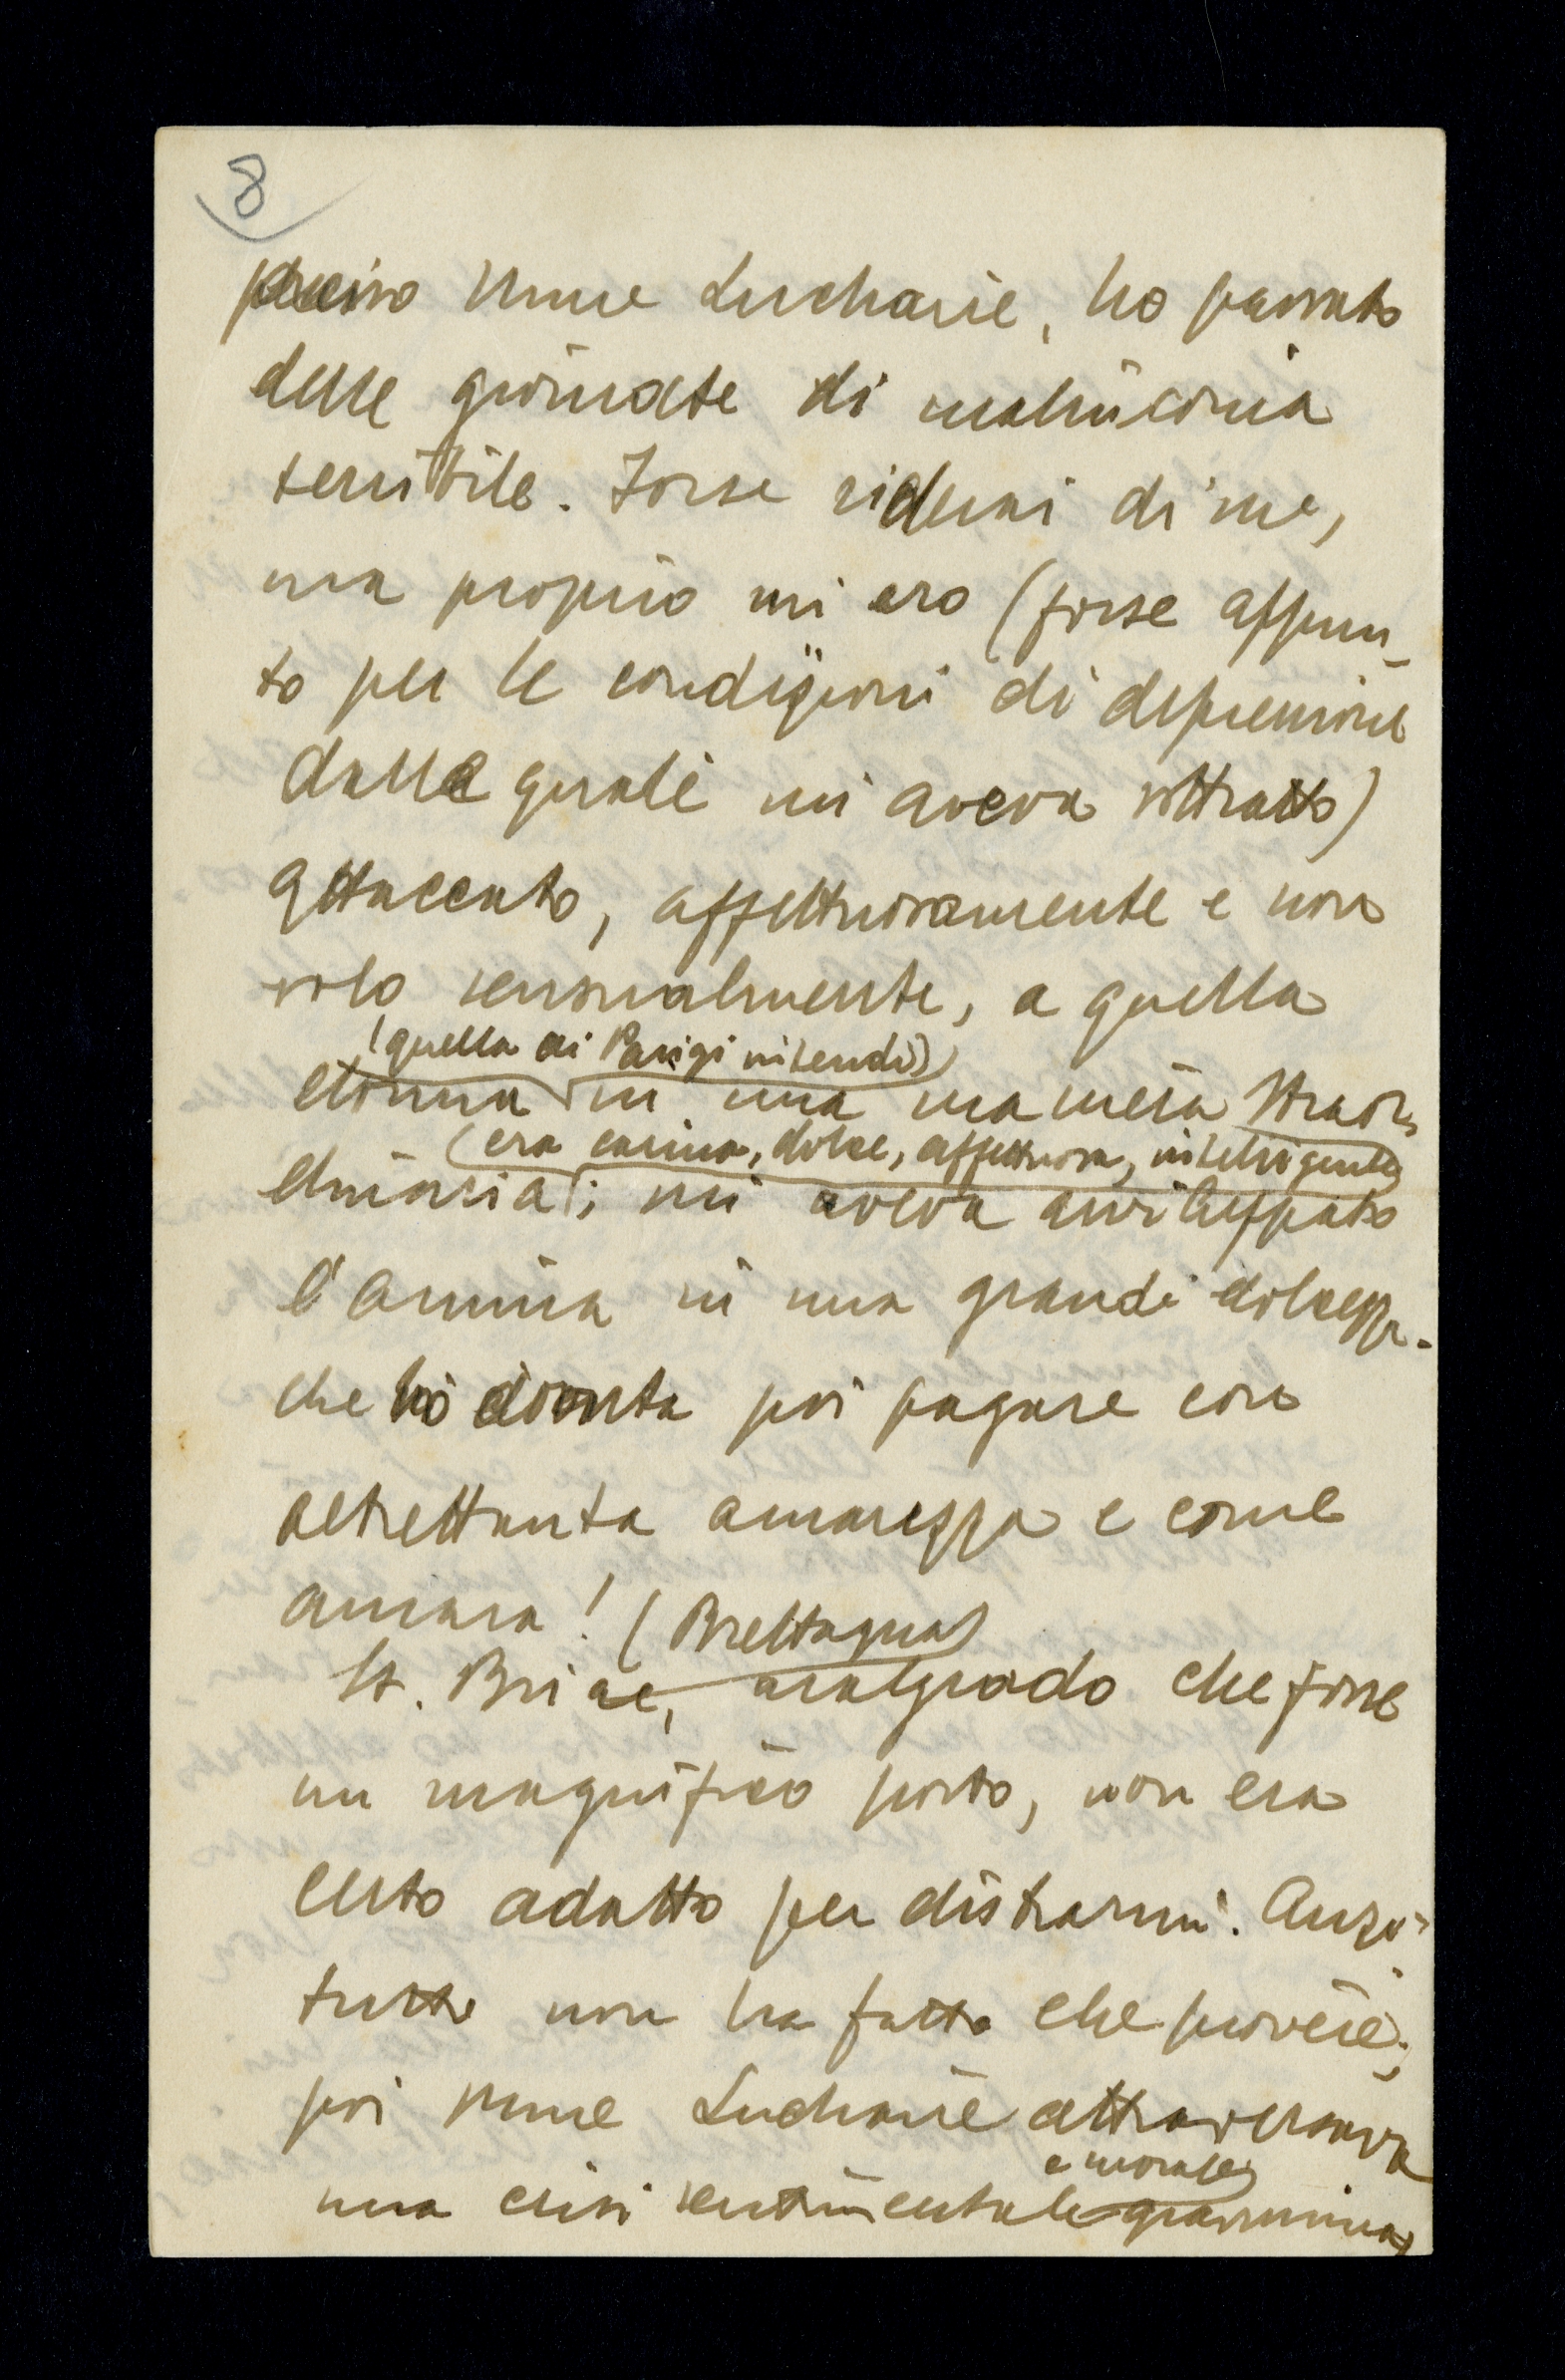 8
presso Mme Luchaire, ho passato
delle giornate di malinconia
terribile. Forse riderai di me,
ma proprio mi ero (forse appun_
to per le condizioni di depressione
dalle quali mi aveva sottratto)
attaccato, affettuosamente e non
solo sensualmente, a quella
(quella di Parigi intendi)
donna in una maniera straor,
(era carina, dolce, affettuosa, intelligente)
dinaria; mi aveva avviluppato
l'anima in una grande dolcezza.
che ho dovuta poi pagare con
altrettanta amarezza e come
amara! (Brettagna)
St. Briac, malgrado che fosse
un magnifico posto, non era
certo adatto per distrarmi. Anzi=
tutto non ha fatto che piovere;
poi Mme Luchaire attraversava
e morale
una crisi sentimentale gravissima,